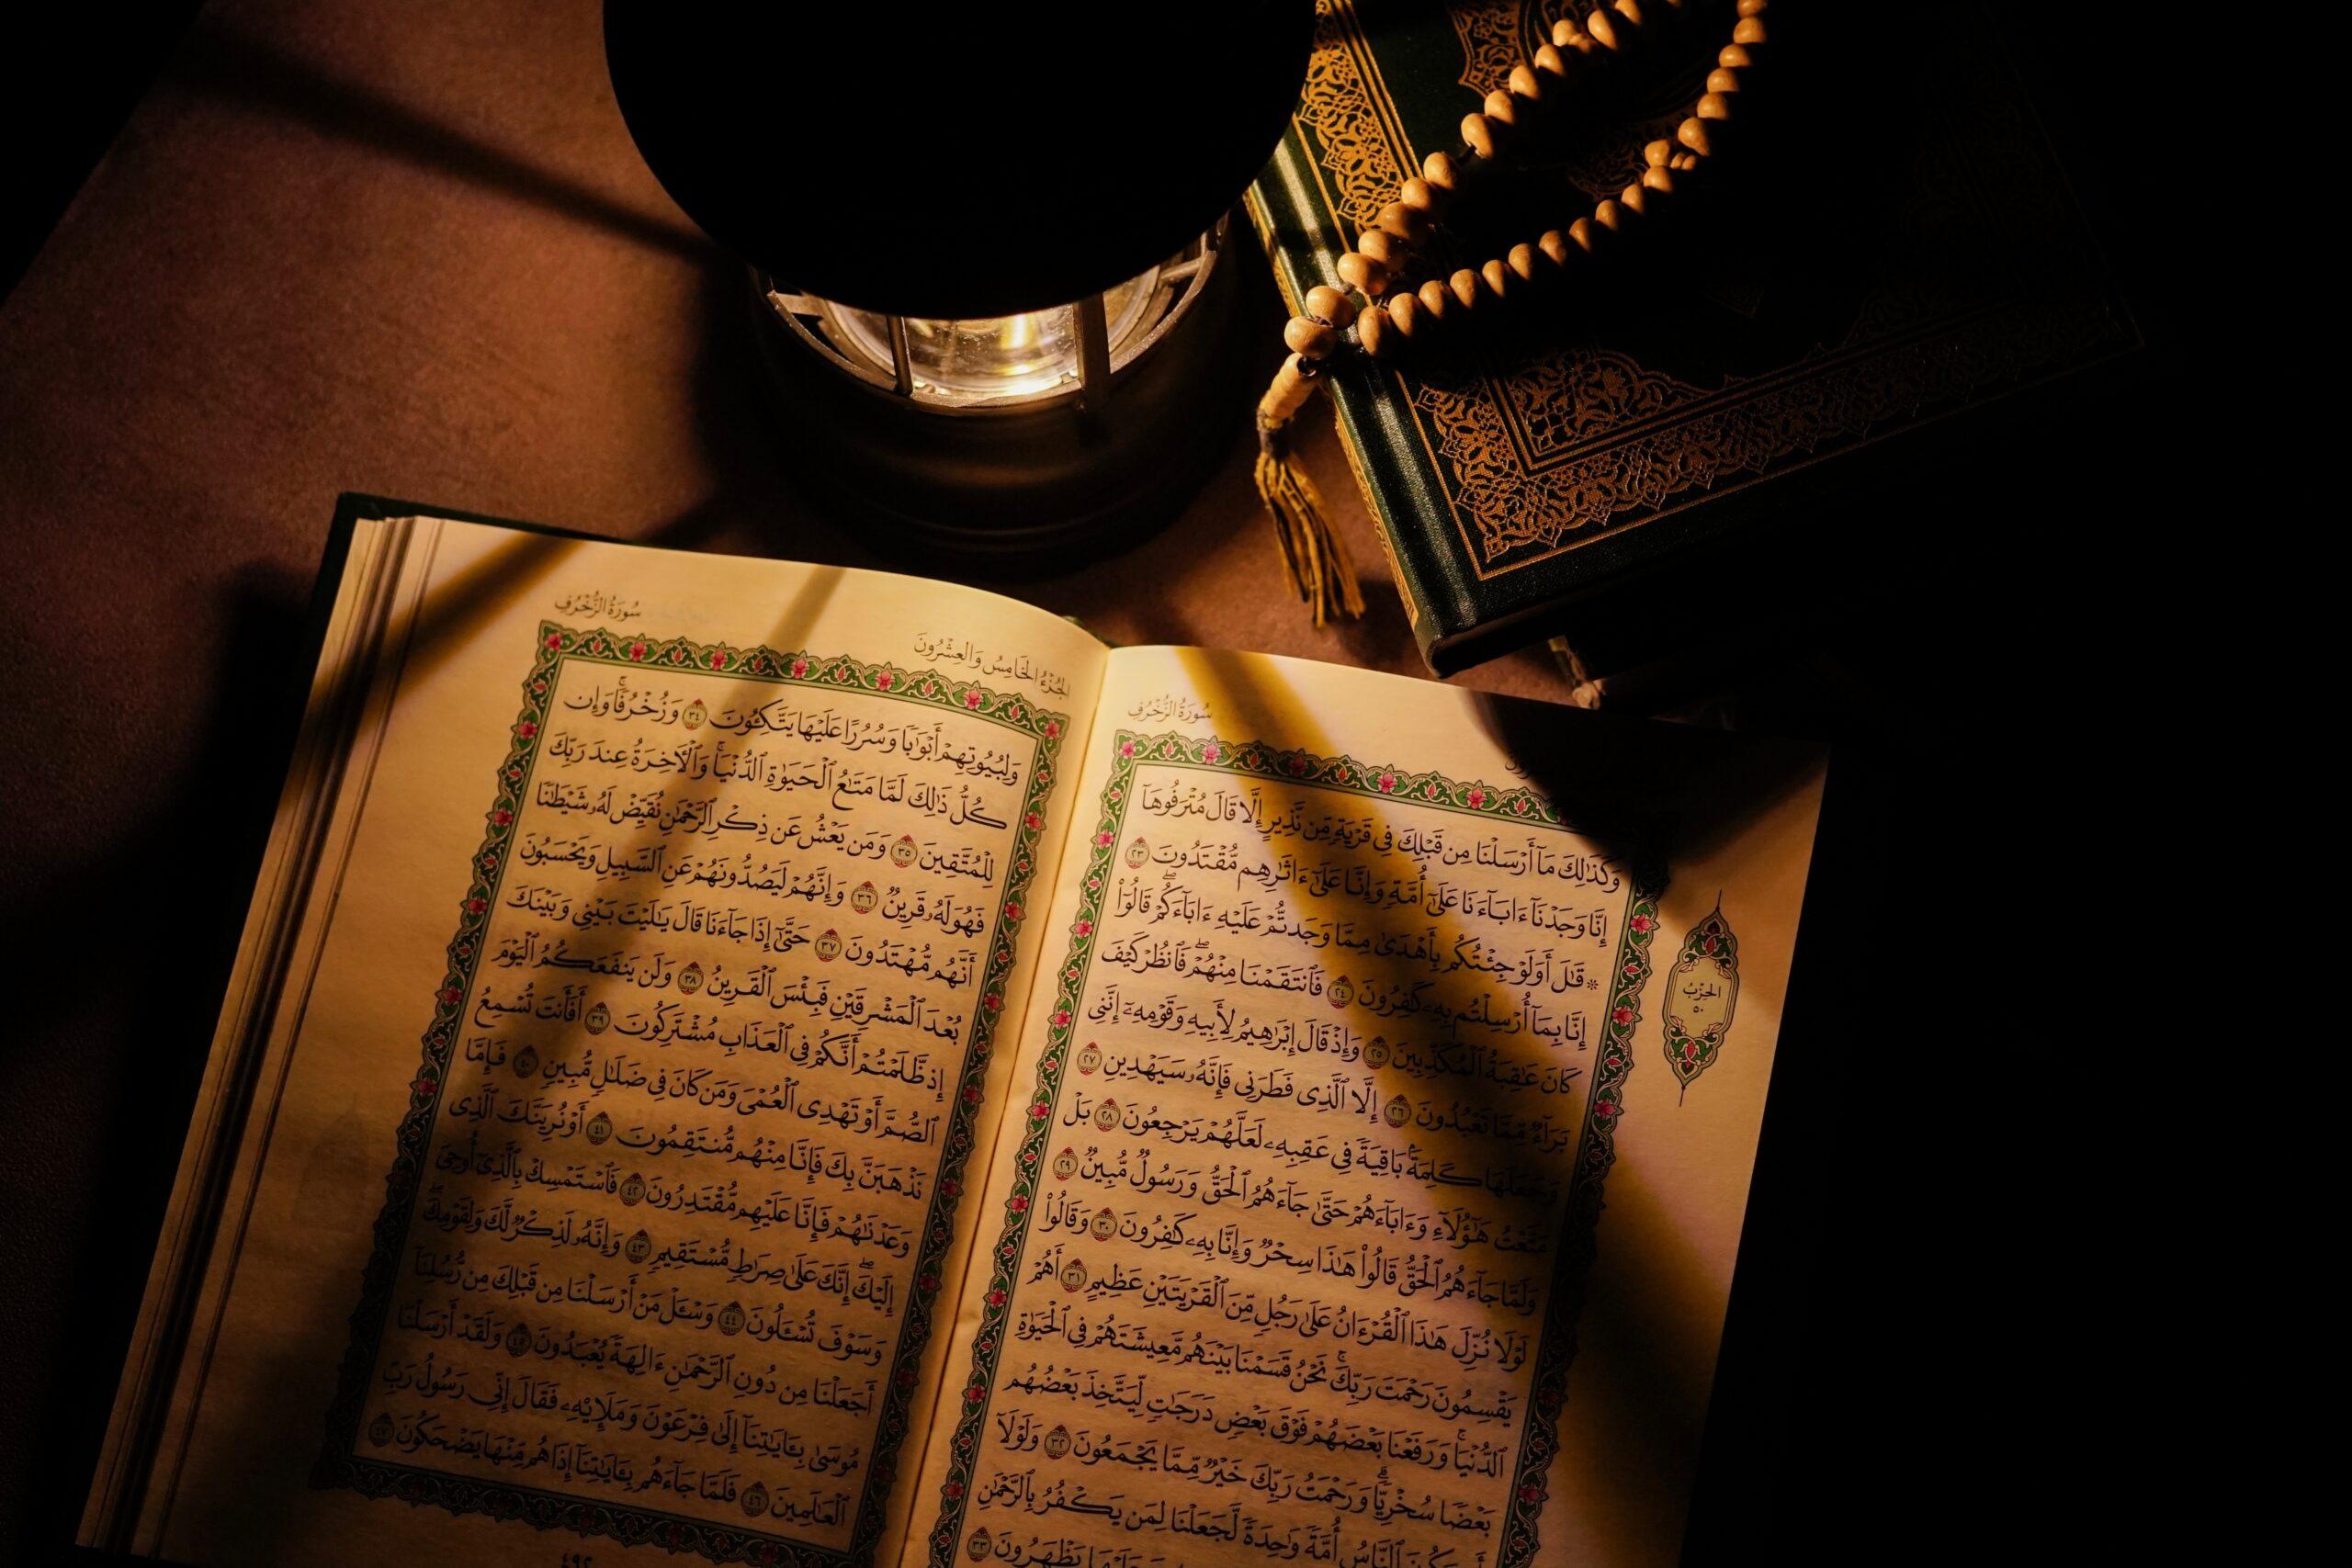 سُورَةُ الزُّخْرُفِ
وَكَذَٰلِكَ مَآ أَرْسَلْنَا مِن قَبْلِكَ فِى قَرْيَةٍ مِّن نَّذِيرٍ إِلَّا قَالَ مُتْرَفُوهَآ
إِنَّا وَجَدْنَآ ءَابَآءَنَا عَلَىٰٓ أُمَّةٍ وَإِنَّا عَلَىٰٓ ءَاثَٰرِهِم مُّقْتَدُونَ ٢٣
۞ قَٰلَ أَوَلَوْ جِئْتُكُم بِأَهْدَىٰ مِمَّا وَجَدتُّمْ عَلَيْهِ ءَابَآءَكُمْ ۖ قَالُوٓا۟
إِنَّا بِمَآ أُرْسِلْتُم بِهِۦ كَٰفِرُونَ ٢٤ فَٱنتَقَمْنَا مِنْهُمْ ۖ فَٱنظُرْ كَيْفَ
كَانَ عَٰقِبَةُ ٱلْمُكَذِّبِينَ ٢٥ وَإِذْ قَالَ إِبْرَٰهِيمُ لِأَبِيهِ وَقَوْمِهِۦٓ إِنَّنِى
بَرَآءٌ مِّمَّا تَعْبُدُونَ ٢٦ إِلَّا ٱلَّذِى فَطَرَنِى فَإِنَّهُۥ سَيَهْدِينِ ٢٧
وَجَعَلَهَا كَلِمَةًۢ بَاقِيَةً فِى عَقِبِهِۦ لَعَلَّهُمْ يَرْجِعُونَ ٢٨ بَلْ
مَتَّعْتُ هَٰٓؤُلَآءِ وَءَابَآءَهُمْ حَتَّىٰ جَآءَهُمُ ٱلْحَقُّ وَرَسُولٌ مُّبِينٌ ٢٩
وَلَمَّا جَآءَهُمُ ٱلْحَقُّ قَالُوا۟ هَٰذَا سِحْرٌ وَإِنَّا بِهِۦ كَٰفِرُونَ ٣٠ وَقَالُوا۟
لَوْلَا نُزِّلَ هَٰذَا ٱلْقُرْءَانُ عَلَىٰ رَجُلٍ مِّنَ ٱلْقَرْيَتَيْنِ عَظِيمٍ ٣١ أَهُمْ
يَقْسِمُونَ رَحْمَتَ رَبِّكَ ۚ نَحْنُ قَسَمْنَا بَيْنَهُم مَّعِيشَتَهُمْ فِى ٱلْحَيَوٰةِ
ٱلدُّنْيَا ۚ وَرَفَعْنَا بَعْضَهُمْ فَوْقَ بَعْضٍ دَرَجَٰتٍ لِّيَتَّخِذَ بَعْضُهُم
بَعْضًا سُخْرِيًّا ۗ وَرَحْمَتُ رَبِّكَ خَيْرٌ مِّمَّا يَجْمَعُونَ ٣٢ وَلَوْلَآ
ٱلنَّاسُ أُمَّةً وَٰحِدَةً لَّجَعَلْنَا لِمَن يَكْفُرُ بِٱلرَّحْمَٰنِ
يَظْهَرُونَ ٣٣
الحِزْبُ
٥٠
الجُزْءُ الخَامِسُ وَالعِشْرُونَ
سُورَةُ الزُّخْرُفِ
وَلِبُيُوتِهِمْ أَبْوَٰبًا وَسُرُرًا عَلَيْهَا يَتَّكِـُٔونَ ٣٤ وَزُخْرُفًا ۚ وَإِن
كُلُّ ذَٰلِكَ لَمَّا مَتَٰعُ ٱلْحَيَوٰةِ ٱلدُّنْيَا ۚ وَٱلْـَٔاخِرَةُ عِندَ رَبِّكَ
لِلْمُتَّقِينَ ٣٥ وَمَن يَعْشُ عَن ذِكْرِ ٱلرَّحْمَٰنِ نُقَيِّضْ لَهُۥ شَيْطَٰنًا
فَهُوَ لَهُۥ قَرِينٌ ٣٦ وَإِنَّهُمْ لَيَصُدُّونَهُمْ عَنِ ٱلسَّبِيلِ وَيَحْسَبُونَ
أَنَّهُم مُّهْتَدُونَ ٣٧ حَتَّىٰٓ إِذَا جَآءَنَا قَالَ يَٰلَيْتَ بَيْنِى وَبَيْنَكَ
بُعْدَ ٱلْمَشْرِقَيْنِ فَبِئْسَ ٱلْقَرِينُ ٣٨ وَلَن يَنفَعَكُمُ ٱلْيَوْمَ
إِذ ظَّلَمْتُمْ أَنَّكُمْ فِى ٱلْعَذَابِ مُشْتَرِكُونَ ٣٩ أَفَأَنتَ تُسْمِعُ
ٱلصُّمَّ أَوْ تَهْدِى ٱلْعُمْىَ وَمَن كَانَ فِى ضَلَٰلٍ مُّبِينٍ ٤٠ فَإِمَّا
نَذْهَبَنَّ بِكَ فَإِنَّا مِنْهُم مُّنتَقِمُونَ ٤١ أَوْ نُرِيَنَّكَ ٱلَّذِى
وَعَدْنَٰهُمْ فَإِنَّا عَلَيْهِم مُّقْتَدِرُونَ ٤٢ فَٱسْتَمْسِكْ بِٱلَّذِىٓ أُوحِىَ
إِلَيْكَ ۖ إِنَّكَ عَلَىٰ صِرَٰطٍ مُّسْتَقِيمٍ ٤٣ وَإِنَّهُۥ لَذِكْرٌ لَّكَ وَلِقَوْمِكَ ۖ
وَسَوْفَ تُسْـَٔلُونَ ٤٤ وَسْـَٔلْ مَنْ أَرْسَلْنَا مِن قَبْلِكَ مِن رُّسُلِنَآ
أَجَعَلْنَا مِن دُونِ ٱلرَّحْمَٰنِ ءَالِهَةً يُعْبَدُونَ ٤٥ وَلَقَدْ أَرْسَلْنَا
مُوسَىٰ بِـَٔايَٰتِنَآ إِلَىٰ فِرْعَوْنَ وَمَلَإِيْهِۦ فَقَالَ إِنِّى رَسُولُ رَبِّ
ٱلْعَٰلَمِينَ ٤٦ فَلَمَّا جَآءَهُم بِـَٔايَٰتِنَآ إِذَا هُم مِّنْهَا يَضْحَكُونَ ٤٧
٤٩٢